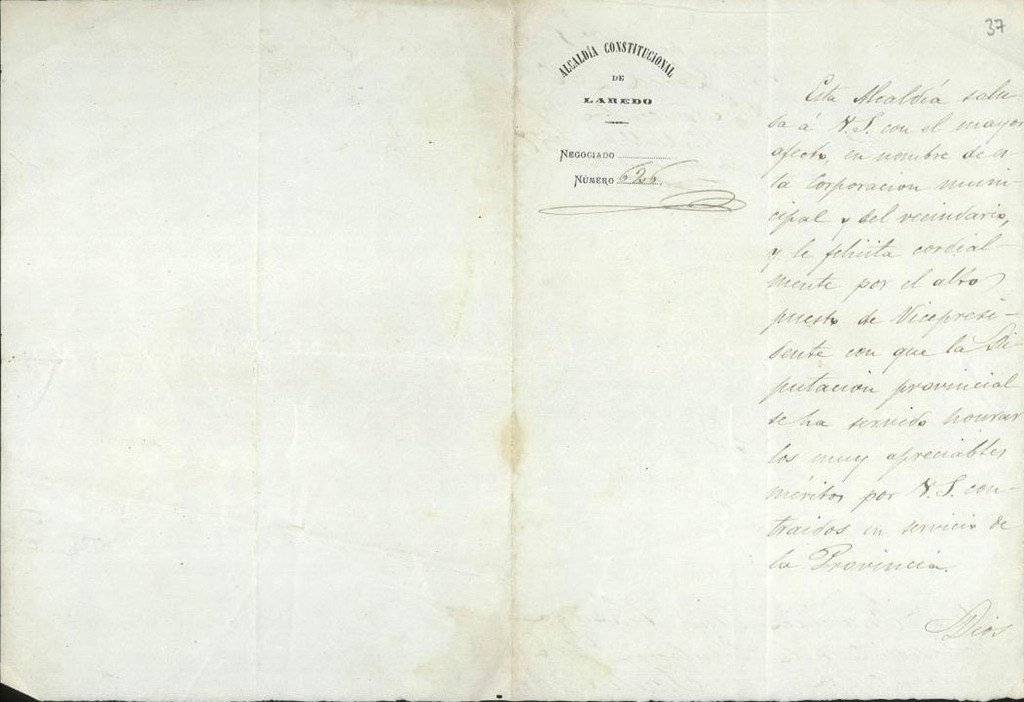 37
ALCALDÍA CONSTITUCIONAL
DE
LAREDO
NEGOCIADO
NÚMERO 626
Esta Alcaldía salu-
da á V. S. con el mayor
afecto, en nombre de es-
ta Corporacion muni-
cipal y del vecindario,
y le felicita cordial-
mente por el alto
puesto de Vicepresi-
dente con que la Di-
putacion provincial
se ha servido honrar
los muy apreciables
méritos por V. S. con-
traidos en servicio de
la Provincia.
Dios